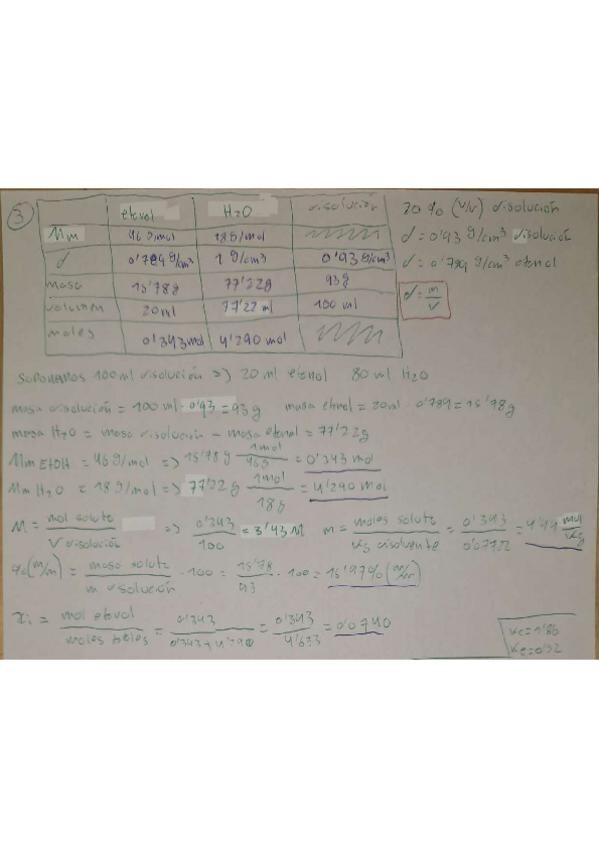 ③
etanol H2O disolución
Mm 46 g/mol 18 g/mol
d 0'789 g/cm³ 1 g/cm³ 0'93 g/cm³
masa 15'78g 77'22g 93g
volumen 20ml 77'22 ml 100 ml
moles 0'343 mol 4'290 mol
20 % (v/v) disolución
d = 0'93 g/cm³ disolución
d = 0'789 g/cm³ etanol
d = m/v
suponamos 100 ml disolución => 20 ml etanol 80 ml H2O
masa disolución = 100 ml · 0'93 = 93 g masa etanol = 20 ml · 0'789 = 15'78g
masa H2O = masa disolución - masa etanol = 77'22g
Mm EtOH = 46 g/mol => 15'78 g 1mol/46g = 0'343 mol
Mm H2O = 18 g/mol => 77'22 g 1mol/18g = 4'290 mol
M = mol soluto/V disolución => 0'343/100 = 3'43 M m = moles soluto/kg disolvente = 0'343/0'07722 = 4'44 mol/kg
%(m/m) = masa soluto/m disolución · 100 = 15'78/93 · 100 = 16'97% (m/m)
χi = mol etanol/moles totales = 0'343/0'343+4'290 = 0'343/4'633 = 0'0740